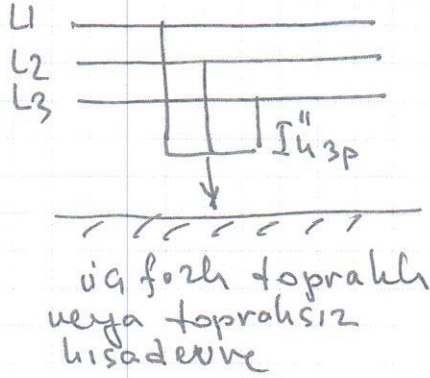 L1
L2
L3
I"k3p
üç fazlı topraklı
veya topraksız
kısadevre